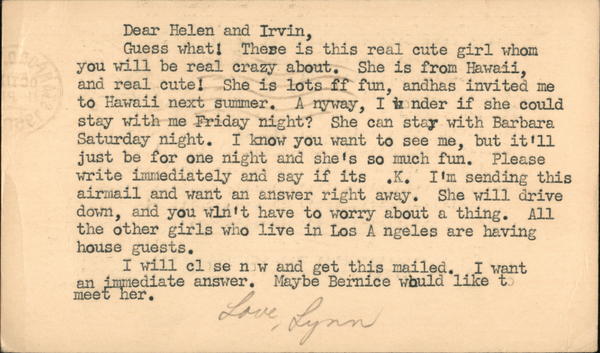 Dear Helen and Irvin,
Guess what! These is this real cute girl whom
you will be real crazy about. She is from Hawaii,
and real cute! She is lots ff fun, andhas invited me
to Hawaii next summer. A nyway, I wonder if she could
stay with me Friday night? She can stay with Barbara
Saturday night. I know you want to see me, but it'll
just be for one night and she's so much fun. Please
write immediately and say if its .K. I'm sending this
airmail and want an answer right away. She will drive
down, and you wln't have to worry about a thing. All
the other girls who live in Los A ngeles are having
house guests.
I will cl se n w and get this mailed. I want
an immediate answer. Maybe Bernice would like to
meet her.
Love, Lynn